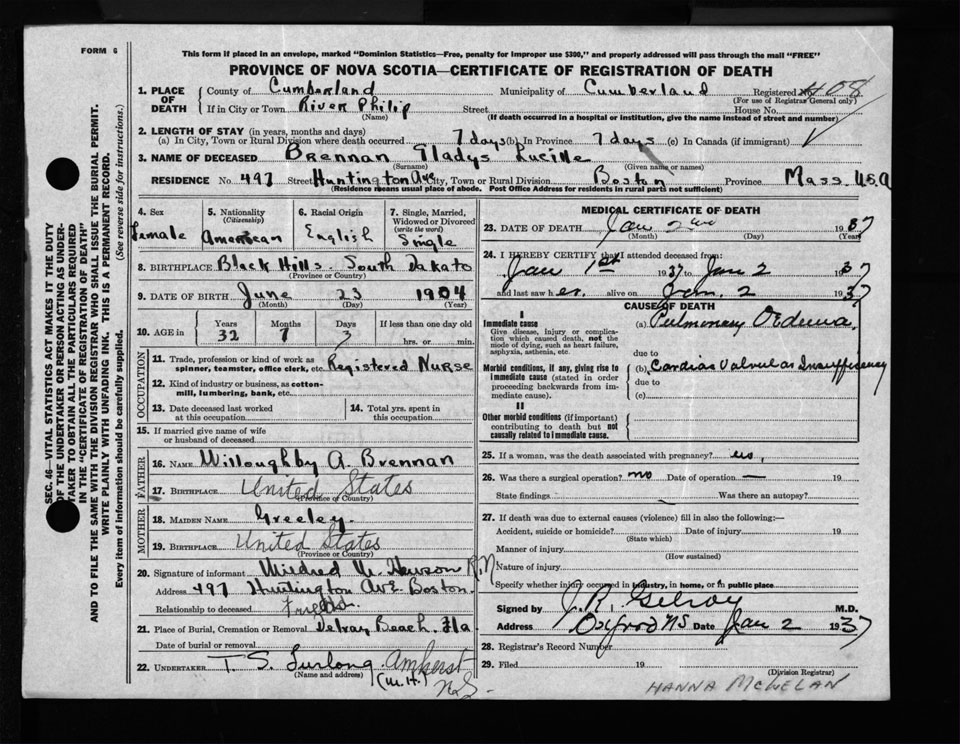 FORM 6
This form if placed in an envelope, marked "Dominion Statistics—Free, penalty for improper use $300," and properly addressed will pass through the mail "FREE"
PROVINCE OF NOVA SCOTIA—CERTIFICATE OF REGISTRATION OF DEATH
1. PLACE OF DEATH { County of Cumberland Municipality of Cumberland Registered No. 408
(For use of Registrar General only)
If in City or Town River Philip Street House No.
(Name) (If death occurred in a hospital or institution, give the name instead of street and number)
2. LENGTH OF STAY (in years, months and days)
(a) In City, Town or Rural Division where death occurred 7 days (b) In Province 7 days (c) In Canada (if immigrant)
3. NAME OF DECEASED Brennan Gladys Lucille
(Surname) (Given name or names)
RESIDENCE No. 497 Street Huntington Ave City, Town or Rural Division Boston Province Mass. U.S.A
(Residence means usual place of abode. Post Office Address for residents in rural parts not sufficient)
4. Sex Female
5. Nationality (Citizenship) American
6. Racial Origin English
7. Single, Married, Widowed or Divorced (write the word) Single
8. BIRTHPLACE Black Hills. South Dakato
(Province or Country)
9. DATE OF BIRTH June 23 1904
(Month) (Day) (Year)
10. AGE in Years 32 Months 7 Days 3 If less than one day old hrs. or min.
OCCUPATION
11. Trade, profession or kind of work as spinner, teamster, office clerk, etc. Registered Nurse
12. Kind of industry or business, as cotton-mill, lumbering, bank, etc.
13. Date deceased last worked at this occupation
14. Total yrs. spent in this occupation
15. If married give name of wife or husband of deceased
FATHER
16. NAME Willoughby A. Brennan
17. BIRTHPLACE United States
(Province or Country)
MOTHER
18. MAIDEN NAME Greeley.
19. BIRTHPLACE United States
(Province or Country)
20. Signature of informant Mildred M. Hewson R.N
Address 497 Huntington Ave Boston.
Relationship to deceased Friend.
21. Place of Burial, Cremation or Removal Delray Beach. Fla
Date of burial or removal
22. UNDERTAKER T. S. Furlong. Amherst
(Name and address) (M.H.) N.S.
MEDICAL CERTIFICATE OF DEATH
23. DATE OF DEATH Jan 2nd 1937
(Month) (Day) (Year)
24. I HEREBY CERTIFY that I attended deceased from:
Jan 1st 1937 to Jan 2 1937
and last saw her alive on Jan. 2 1937
CAUSE OF DEATH
I
Immediate cause (a) Pulmonary Oedema
Give disease, injury or complication which caused death, not the mode of dying, such as heart failure, asphyxia, asthenia, etc.
due to
Morbid conditions, if any, giving rise to immediate cause (stated in order proceeding backwards from immediate cause) (b) Cardiac Valvular Insufficiency
due to
(c)
II
Other morbid conditions (if important) contributing to death but not causally related to immediate cause.
25. If a woman, was the death associated with pregnancy? no.
26. Was there a surgical operation? no Date of operation — 19
State findings Was there an autopsy?
27. If death was due to external causes (violence) fill in also the following:—
Accident, suicide or homicide? Date of injury 19
(State which)
Manner of injury
(How sustained)
Nature of injury
Specify whether injury occurred in industry, in home, or in public place
Signed by J. R. Gilroy M.D.
Address Oxford NS Date Jan 2 1937
28. Registrar's Record Number
29. Filed 19
(Division Registrar)
HANNA McWELAN
SEC. 46—VITAL STATISTICS ACT MAKES IT THE DUTY
OF THE UNDERTAKER OR PERSON ACTING AS UNDER-
TAKER TO OBTAIN ALL THE PARTICULARS REQUIRED
IN THE "CERTIFICATE OF REGISTRATION OF DEATH"
AND TO FILE THE SAME WITH THE DIVISION REGISTRAR WHO SHALL ISSUE THE BURIAL PERMIT.
WRITE PLAINLY WITH UNFADING INK. THIS IS A PERMANENT RECORD.
Every item of information should be carefully supplied. (See reverse side for instructions.)